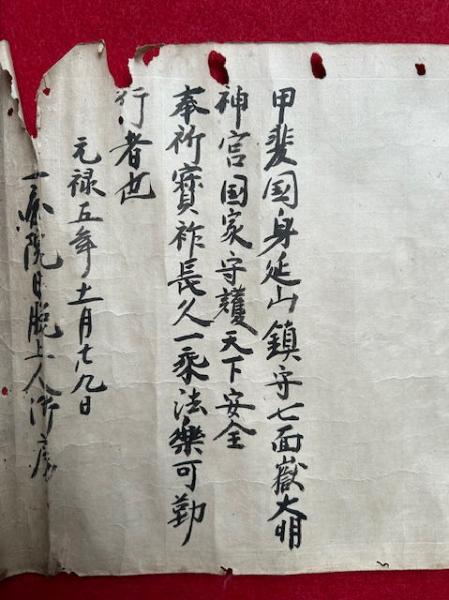 甲斐国身延山鎮守七面嶽大明
神宮国家守護天下安全
奉祈寳祚長久一乗法樂可勤
行者也
元禄五年十一月廿九日
一 院日脱上人御房